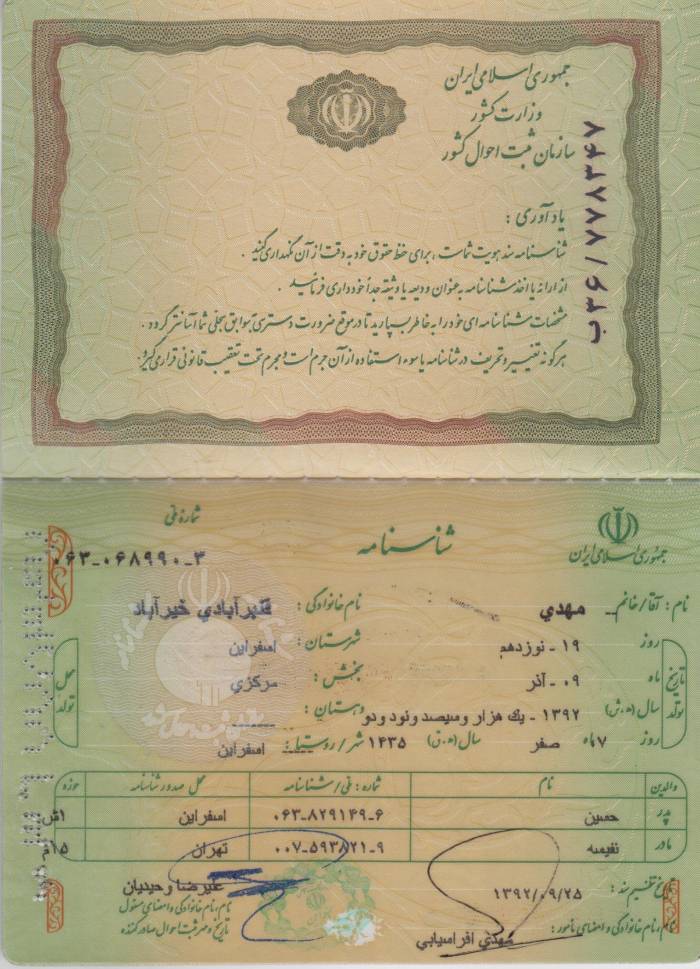 جمهوری اسلامی ایران
وزارت کشور
سازمان ثبت احوال کشور
ب۳۶/۷۷۸۳۴۷
یادآوری :
شناسنامه سند هویت شماست ، برای حفظ حقوق خود به دقت از آن نگهداری کنید .
از ارائه یا اخذ شناسنامه به عنوان ودیعه یا وثیقه جداً خودداری فرمائید .
مشخصات شناسنامه ای خود را به خاطر بسپارید تا در موقع ضرورت دسترسی به سوابق سجلی شما آسانتر گردد .
هرگونه تغییر و تحریف در شناسنامه یا سوء استفاده از آن جرم است و مجرم تحت تعقیب قانونی قرار می گیرد .
جمهوری اسلامی ایران
شناسنامه
شماره ملی
۰۶۳-۰۶۸۹۹۰-۳
نام : آقا/خانم مهدي نام خانوادگی : قنبرآبادي خيرآباد
تاریخ تولد روز ۱۹ - نوزدهم شهرستان : اسفراين محل تولد
ماه ۰۹ - آذر بخش : مرکزي
سال (ه.ش) ۱۳۹۲ - يك هزار و سيصد و نود و دو دهستان : ------
روز ۷ ماه صفر سال (ه.ق) ۱۴۳۵ شهر/روستا : اسفراين
والدین نام شماره : ملی/شناسنامه محل صدور شناسنامه حوزه
پدر حسين ۰۶۳-۸۲۹۱۴۹-۶ اسفراين ۱اش
مادر نفيسه ۰۰۷-۵۹۳۸۲۱-۹ تهران ۱۵م
تاریخ تنظیم سند : ۱۳۹۲/۰۹/۲۵ عليرضا وحيديان
نام، نام خانوادگی و امضای مأمور : مهدي افراسيابي
نام، نام خانوادگی و امضای مسئول
تاریخ و مهر ثبت احوال صادرکننده